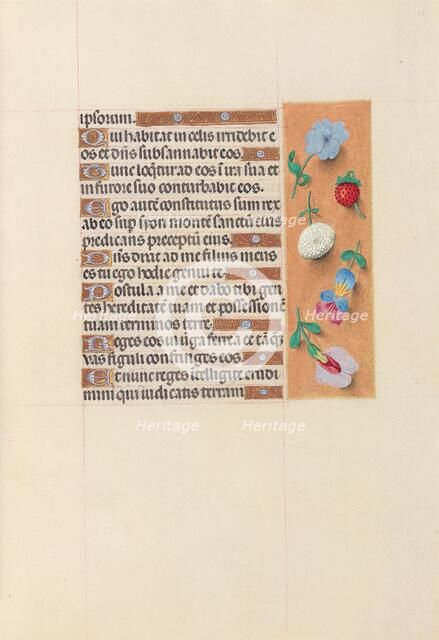 ipsorum.
Qui habitat in celis irridebit e
os et dñs subsannabit eos.
Tunc loq̃tur ad eos ĩ ira sua et
in furore suo conturbabit eos.
Ego autẽ constitutus sum rex
ab eo sup syon montẽ sanctũ eius
predicans preceptũ eius.
Dñs dixit ad me filius meus
es tu ego hodie genui te.
Postula a me et dabo tibi gen
tes hereditatẽ tuam et possessionẽ
tuam terminos terre.
Reges eos ĩ uirga ferrea et tãq̃
vas figuli confringes eos.
Et nunc reges ĩtelligite erudi
mini qui iudicatis terram
Heritage
Heritage
Heritage
Heritage
Heritage
Heritage